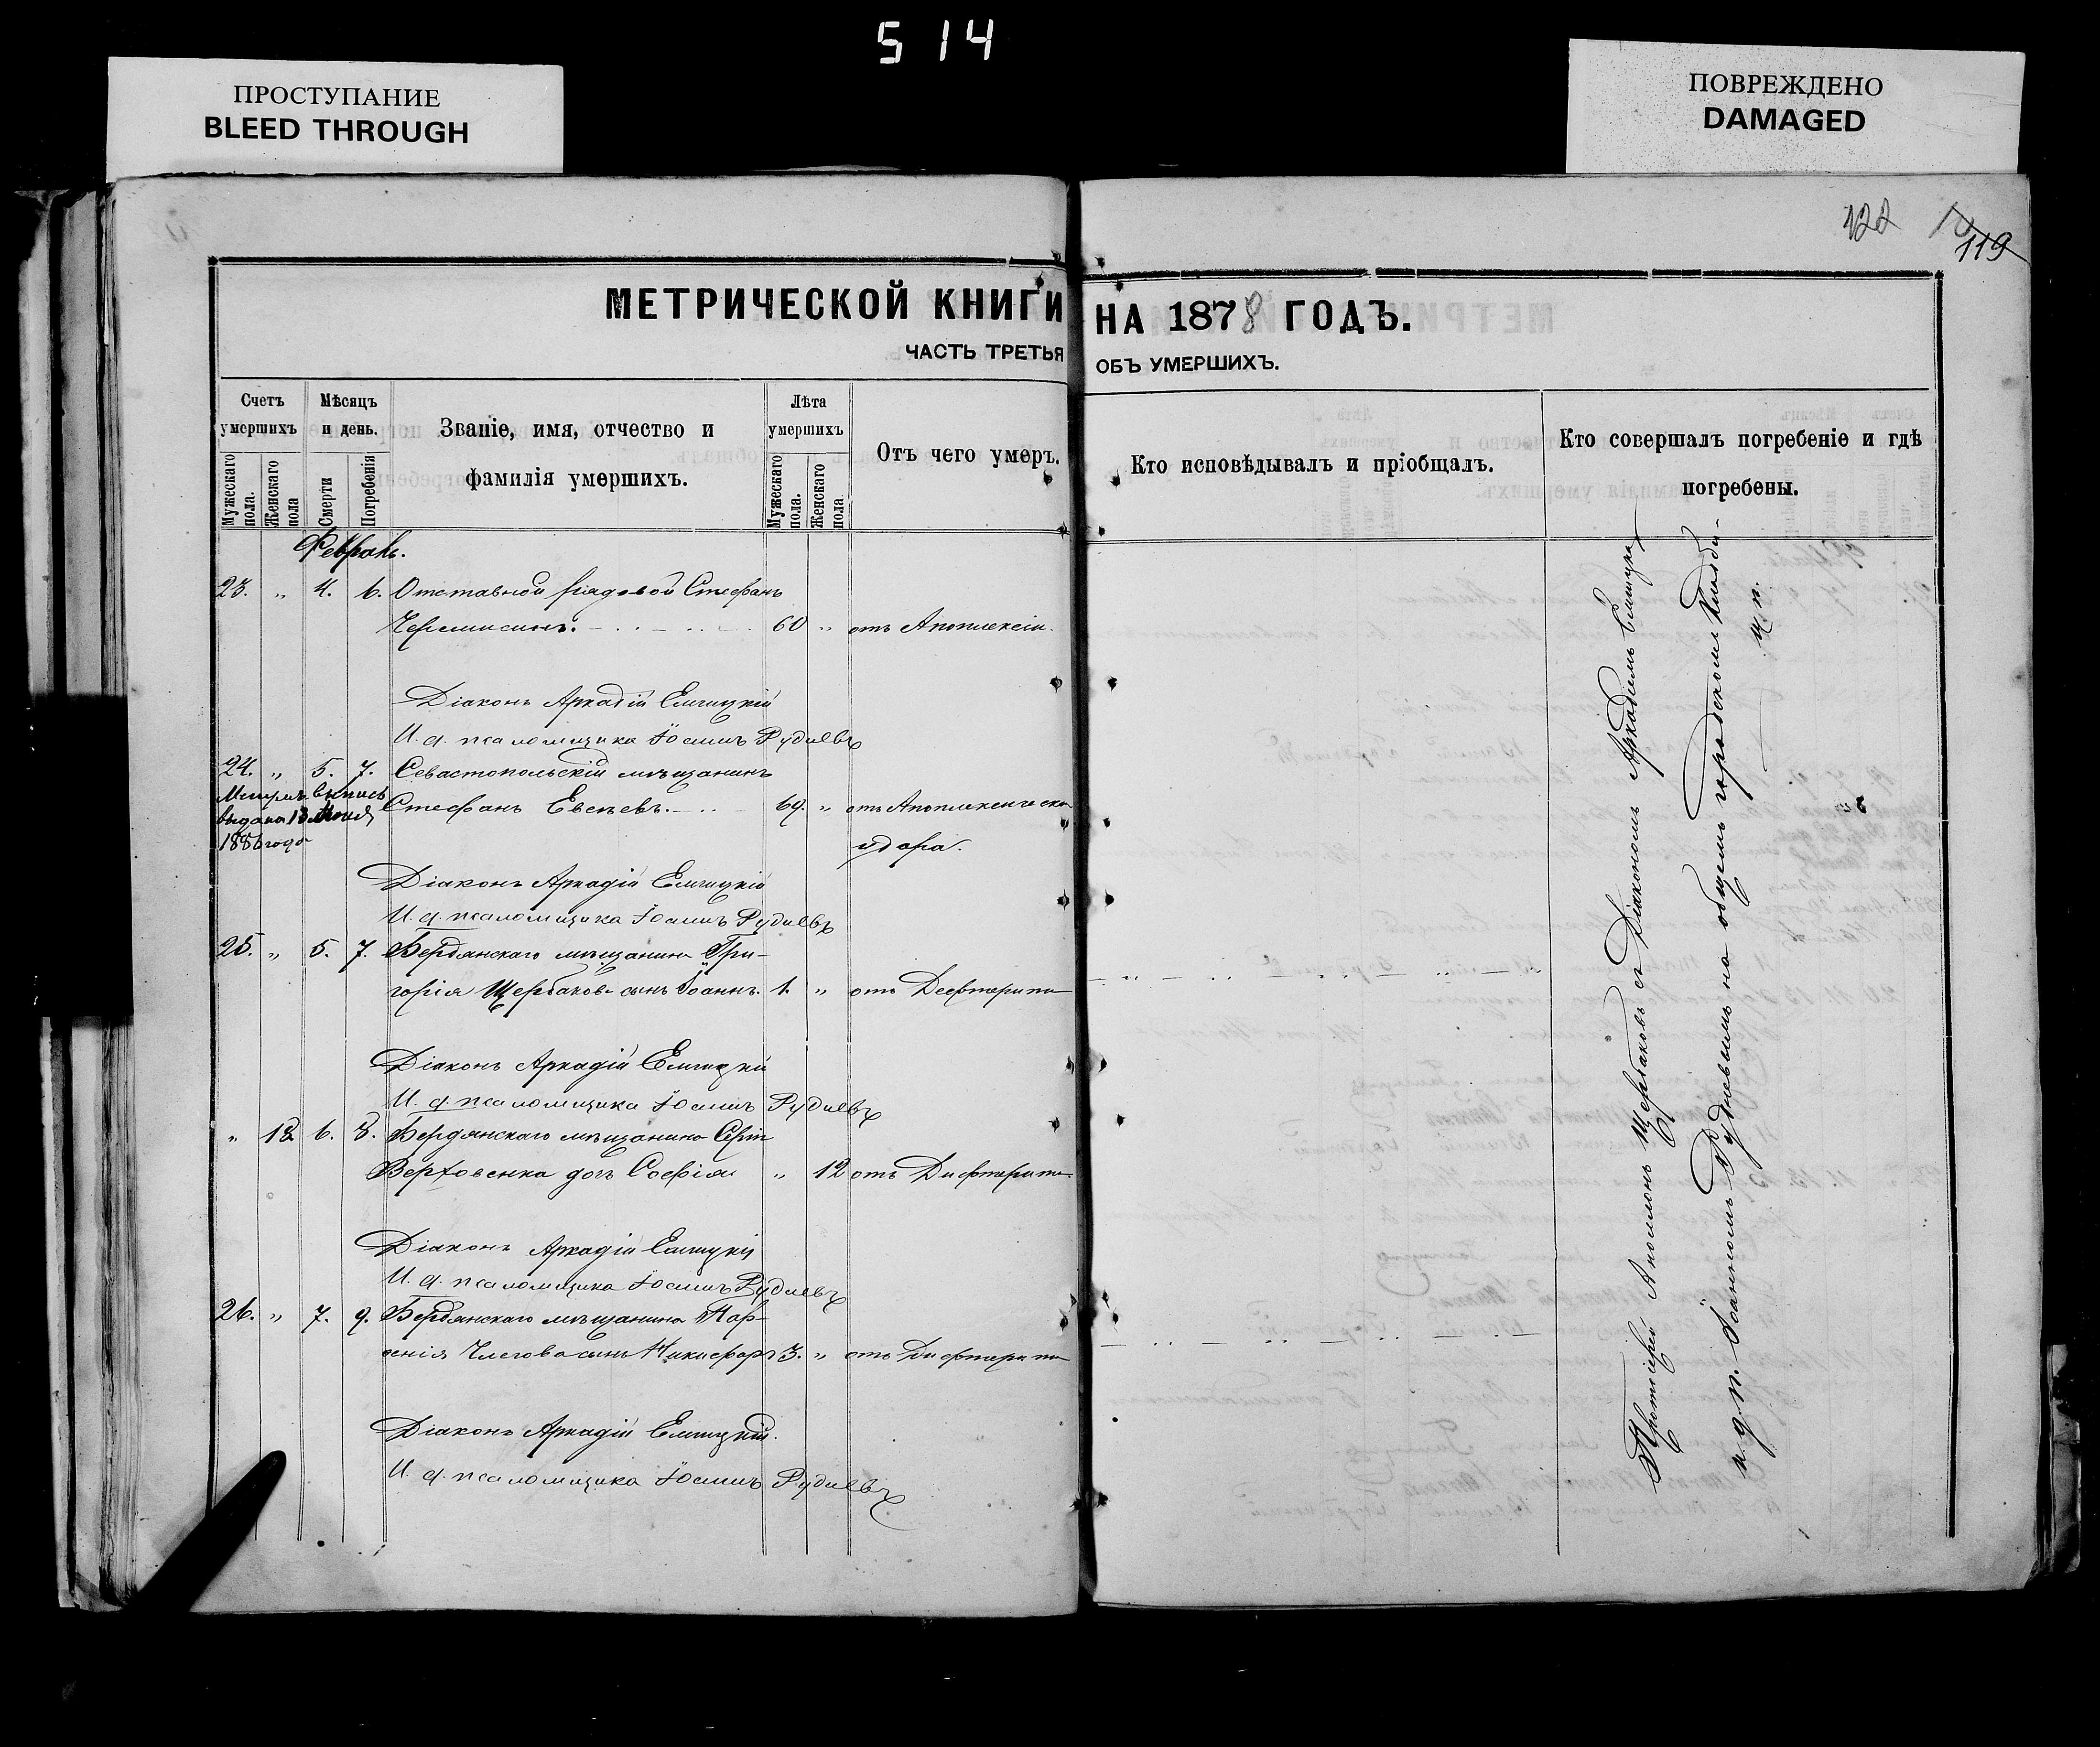 5 14
ПРОСТУПАНИЕ
BLEED THROUGH
ПОВРЕЖДЕНО
DAMAGED
122
119
МЕТРИЧЕСКОЙ КНИГИ НА 1878 ГОДЪ.
ЧАСТЬ ТРЕТЬЯ ОБЪ УМЕРШИХЪ.
Счетъ умершихъ
Мужескаго пола.
Женскаго пола
Мѣсяцъ и день.
Смерти
Погребенія
Званіе, имя, отчество и
фамилія умершихъ.
Лѣта умершихъ
Мужескаго пола.
Женскаго пола
Отъ чего умеръ.
Кто исповѣдывалъ и пріобщалъ.
Кто совершалъ погребеніе и гдѣ
погребены.
Февраль.
23. „ 4. 6. Отставной рядовой Стефанъ
Черемисинъ. 60 „ отъ Апоплексіи.
Діаконъ Аркадій
И. д. псаломщика Іоаннъ Рудневъ
24. „ 5. 7. Севастопольскій мѣщанинъ
выпись
выдана 13
1886 года
Стефанъ Евсѣевъ. 69. „ отъ
удара.
Діаконъ Аркадій
И. д. псаломщика Іоаннъ Рудневъ
25. „ 5. 7. Бердянскаго мѣщанина Гри-
горія Щербакова сынъ Іоаннъ. 1. „ отъ Дефтерита
Діаконъ Аркадій
И. д. псаломщика Іоаннъ Рудневъ
„ 12 6. 8. Бердянскаго мѣщанина
дочь Софія „ 12 отъ Дифтерита
Діаконъ Аркадій
И. д. псаломщика Іоаннъ Рудневъ
26. „ 7. 9. Бердянскаго мѣщанина Пар-
фенія сынъ Никифоръ 3. „ отъ Дифтерита
Діаконъ Аркадій
И. д. псаломщика Іоаннъ Рудневъ
Протоіерей Аполлонъ Щербаковъ съ Діакономъ Аркадіемъ
и. д. п. Іоанномъ Рудневымъ на общемъ городскомъ кладби-
щѣ.